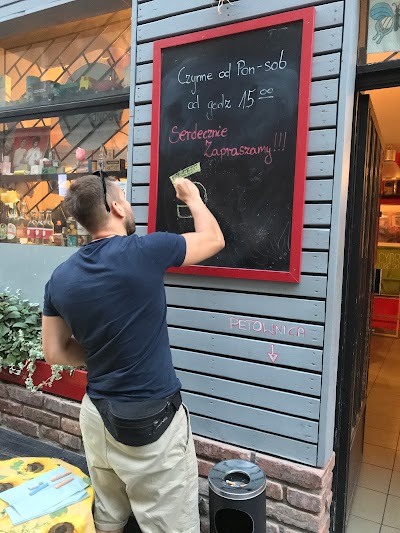 Czynne od Pon-sob
od godz 15⁰⁰
Serdecznie
Zapraszamy!!!
PETOWNICA